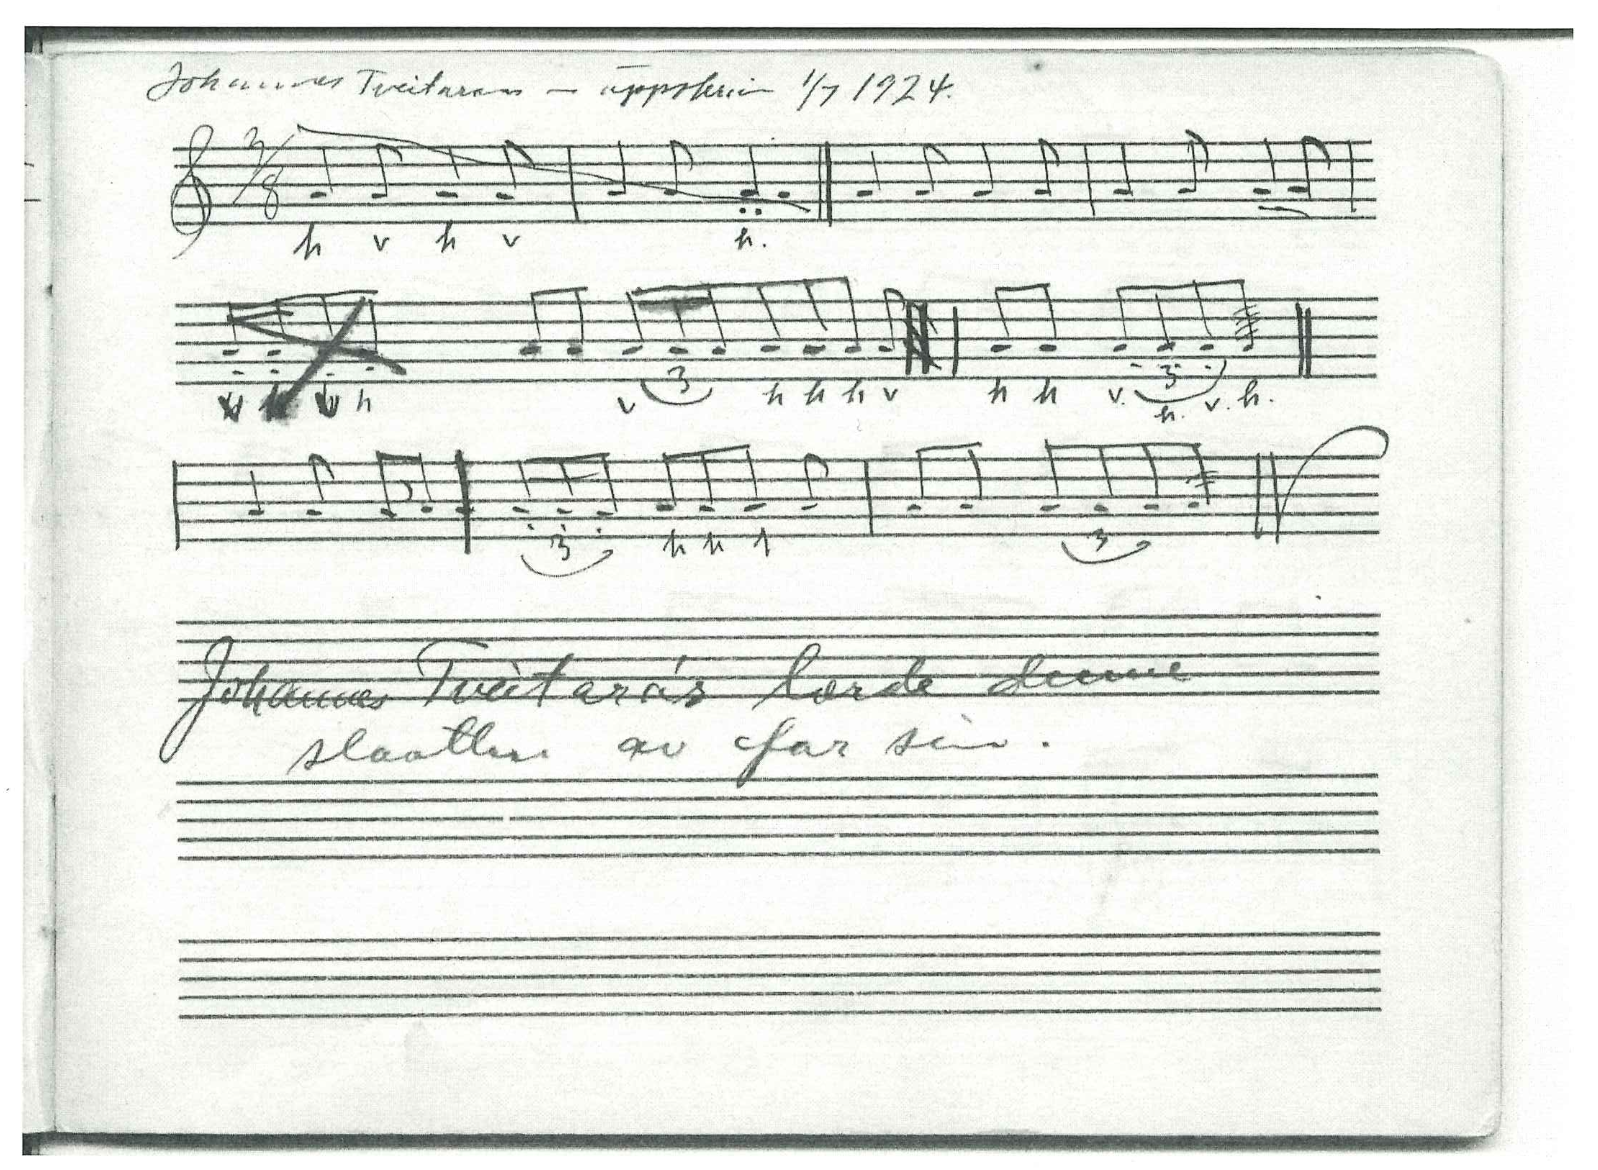 Johannes Tveitaraas — uppskriv 1/7 1924.
3/8
h v h v h.
h v 3 h h h v h h v. 3 h. v. h.
3 h h 3
Johannes Tveitaraas lærde denne
slaatten av far sin.